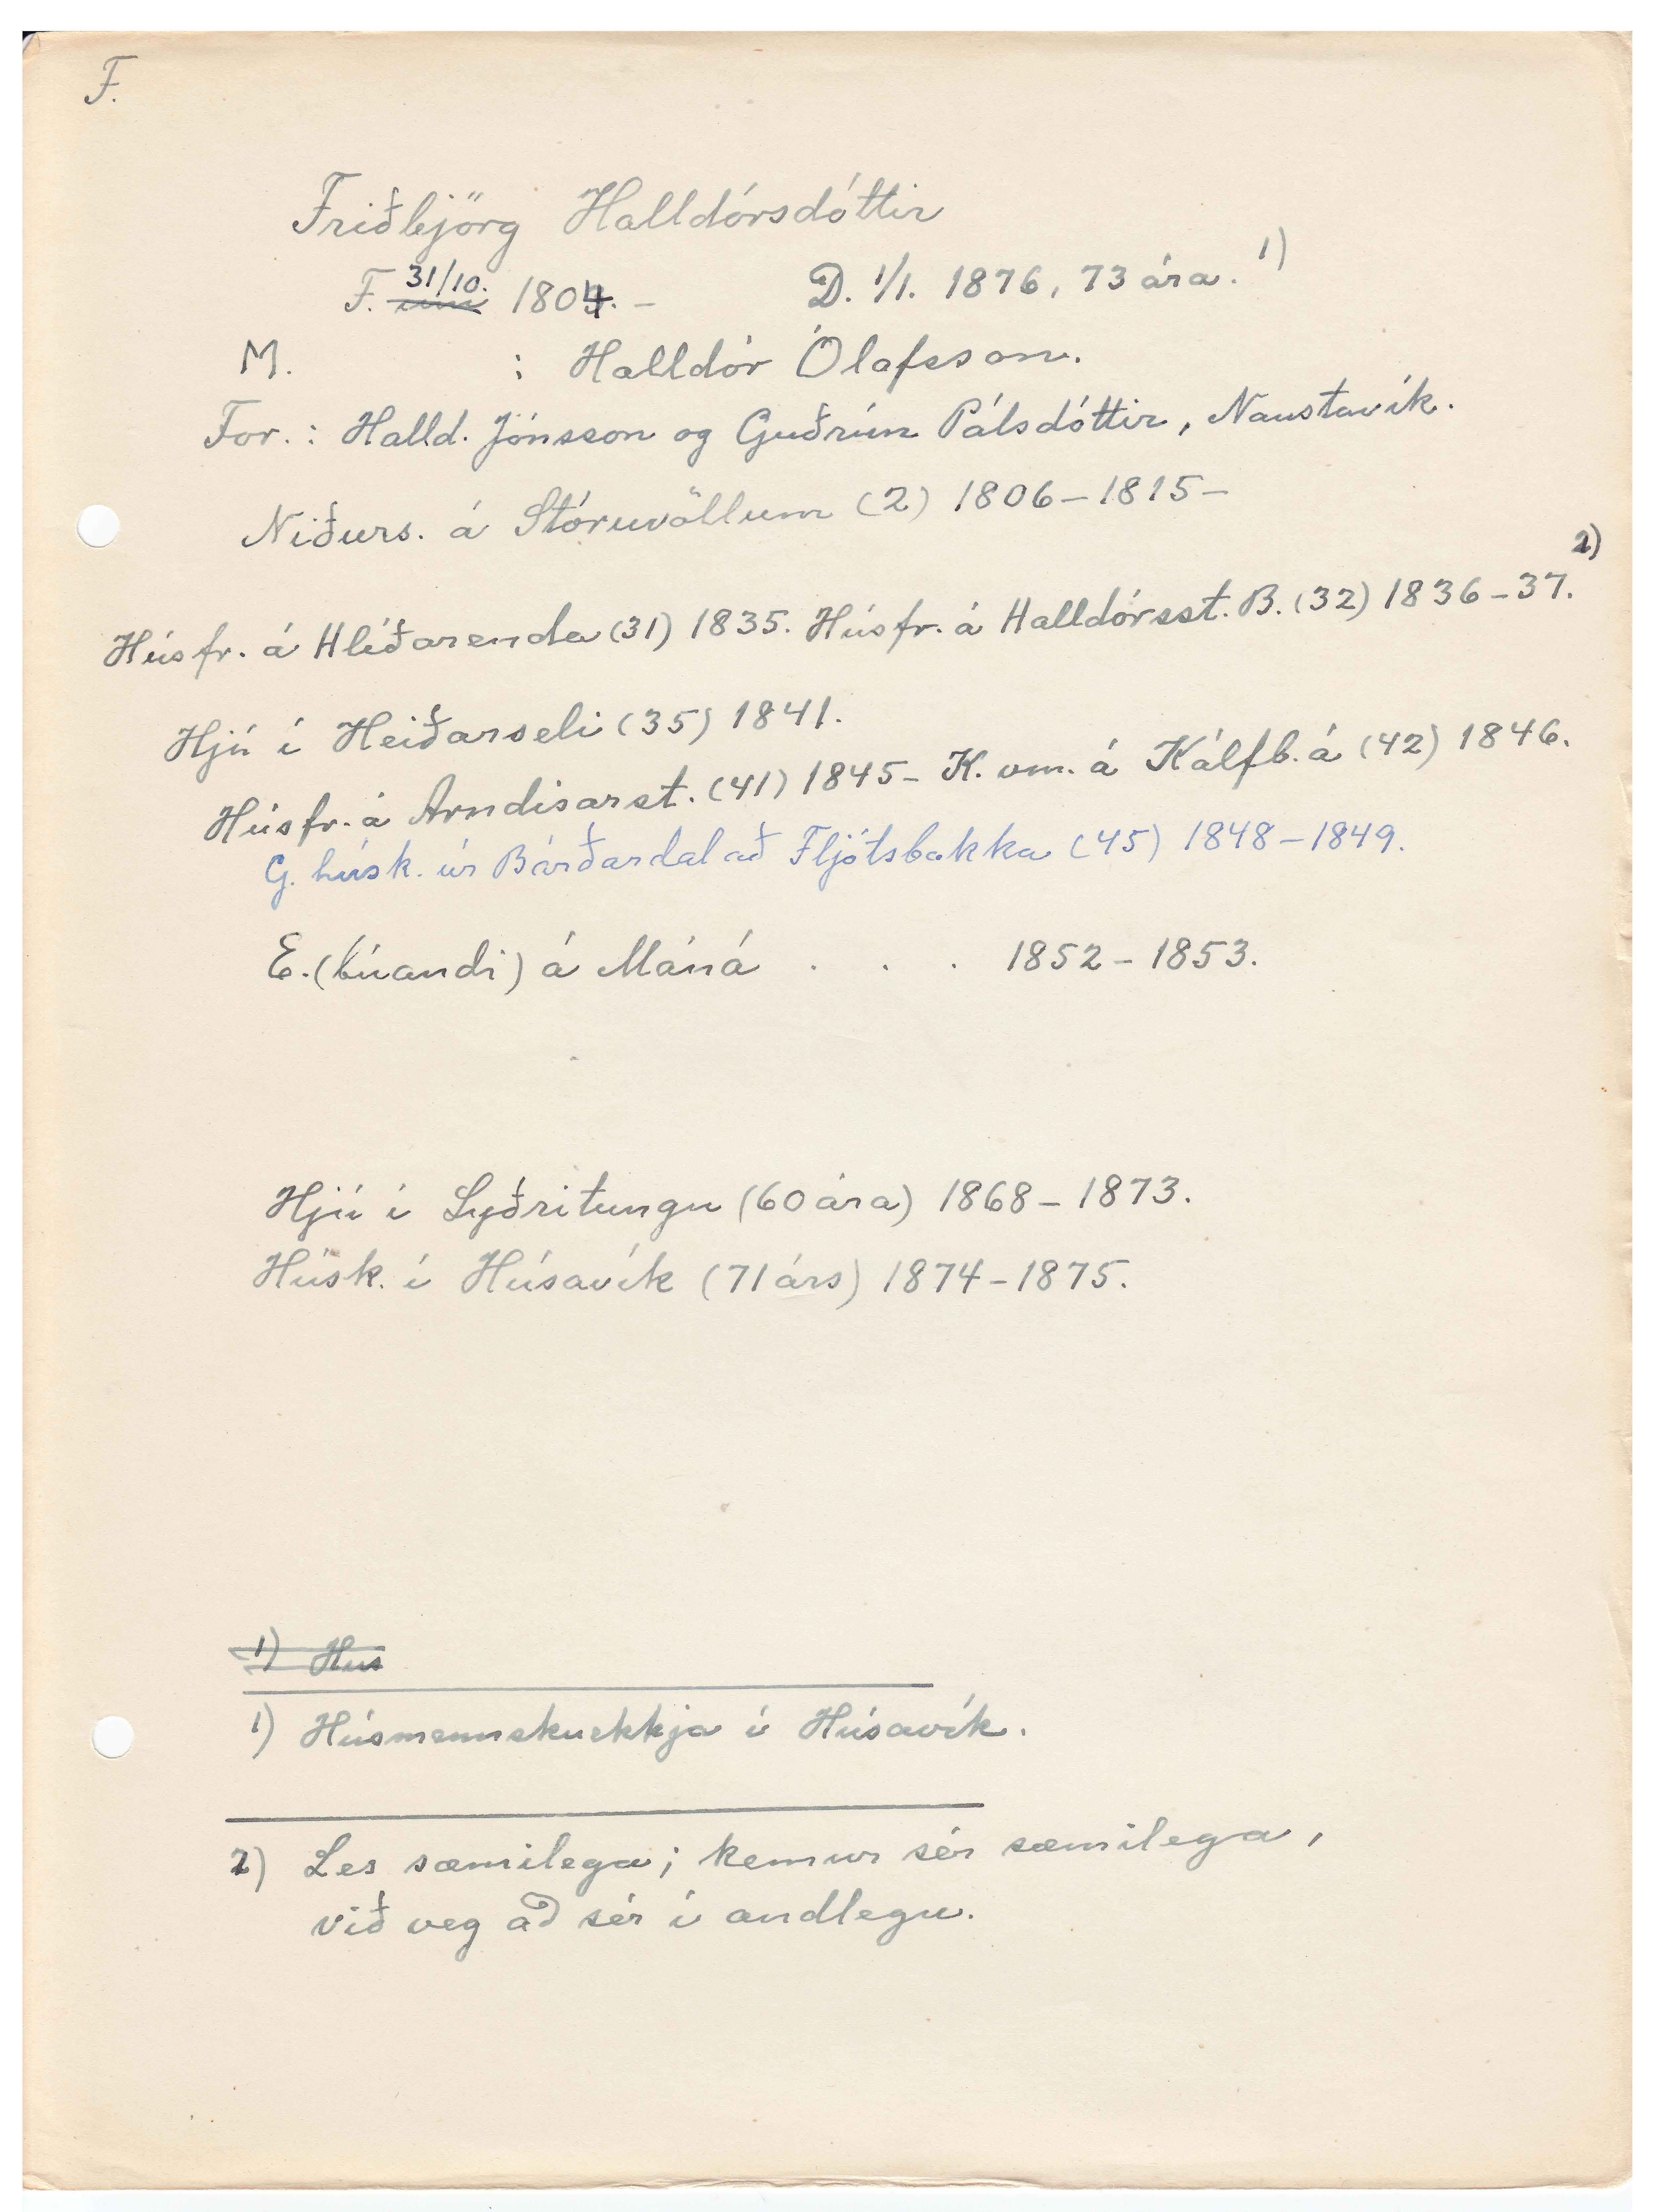 F.
Friðbjörg Halldórsdóttir
F. 31/10. 1804. - D. 1/1. 1876, 73 ára. 1)
M. : Halldór Ólafsson.
For.: Halld. Jónsson og Guðrún Pálsdóttir, Naustavík.
Niðurs. á Stóruvöllum (2) 1806-1815-
Húsfr. á Hlíðarenda (31) 1835. Húsfr. á Halldórsst. B. (32) 1836-37. 2)
Hjú í Heiðarseli (35) 1841.
Húsfr. á Arndísarst. (41) 1845- K. vm. á Kálfb.á (42) 1846.
G. húsk. úr Bárðardal að Fljótsbakka (45) 1848-1849.
E. (búandi) á Máná . . . 1852-1853.
Hjú í Syðritungu (60 ára) 1868-1873.
Húsk. í Húsavík (71 árs) 1874-1875.
1) Hús
1) Húsmennskuekkja í Húsavík.
2) Les sæmilega; kemur sér sæmilega,
við veg að sér í andlegu.